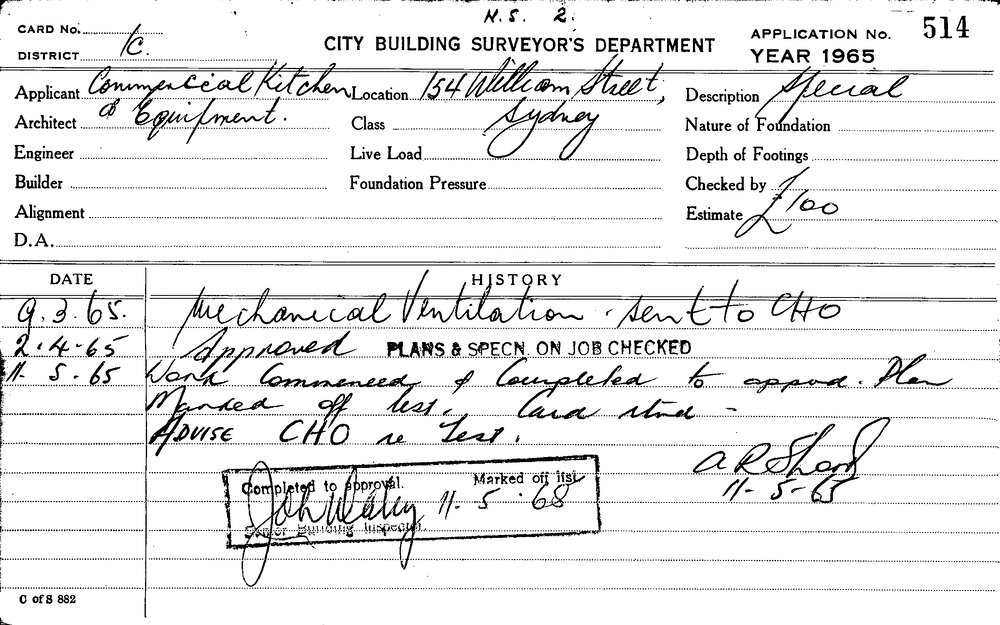 N.S. 2.
CARD No.
DISTRICT 1c.
CITY BUILDING SURVEYOR'S DEPARTMENT
APPLICATION No. 514
YEAR 1965
Applicant Commercial Kitchen Location 154 William Street, Description Special
Architect & Equipment. Class Sydney Nature of Foundation
Engineer Live Load Depth of Footings
Builder Foundation Pressure Checked by
Alignment Estimate £100
D.A.
DATE HISTORY
9.3.65. Mechanical Ventilation - sent to CHO
2.4.65 Approved PLANS & SPECN. ON JOB CHECKED
11.5.65 Work Commenced & Completed to appvd. Plan
Marked off list. Card -
ADVISE CHO re Test.
11-5-65
Completed to approval. Marked off list
11.5.68
Senior Building Inspector.
C of S 882